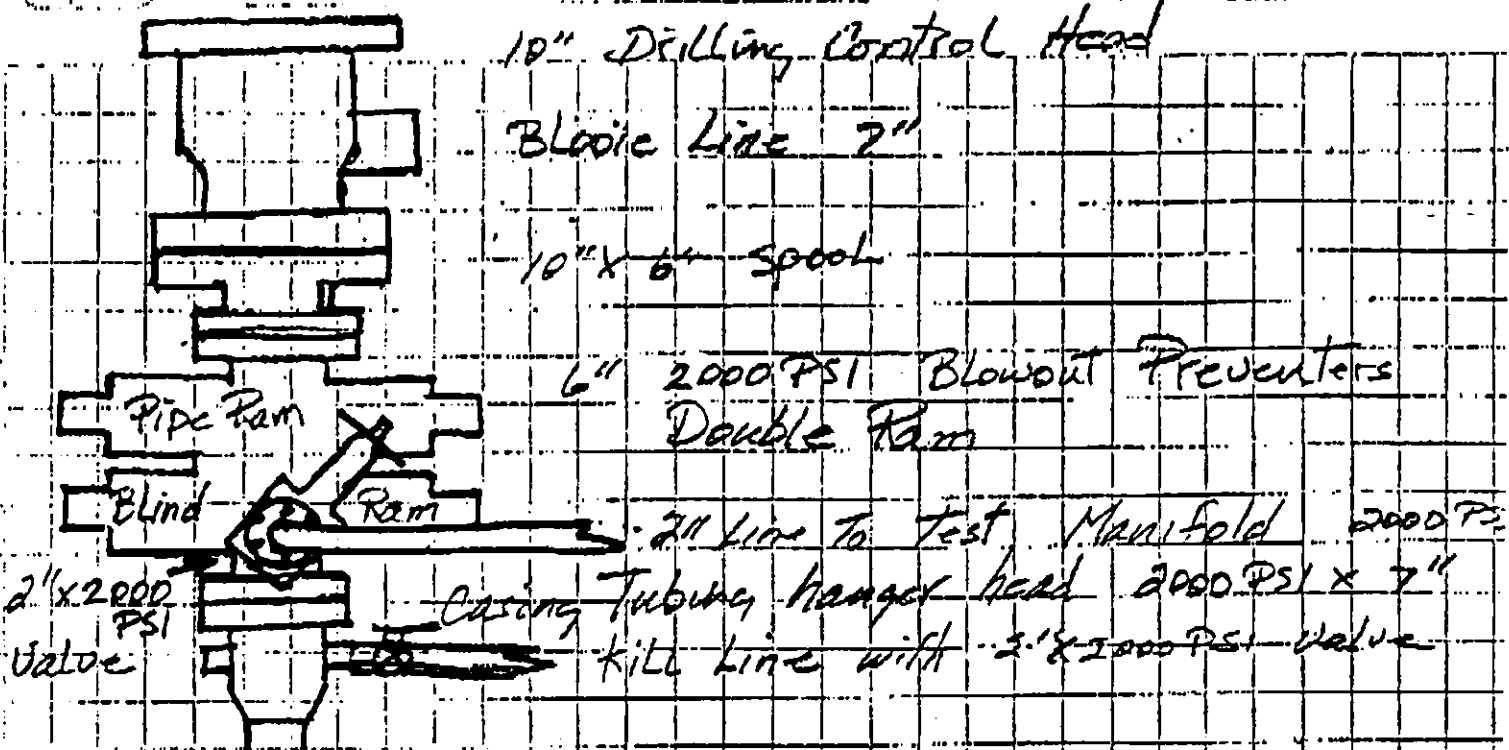 10" Drilling Control Head
Blooie Line 7"
10" X 6" Spool
6" 2000 PSI Blowout Preventers
Double Ram
Pipe Ram
Blind Ram
2" Line To Test Manifold 2000 PS
2" x 2000 PSI Valve
Casing Tubing hanger head 2000 PSI X 7"
Kill Line with 2" X 2000 PSI Valve